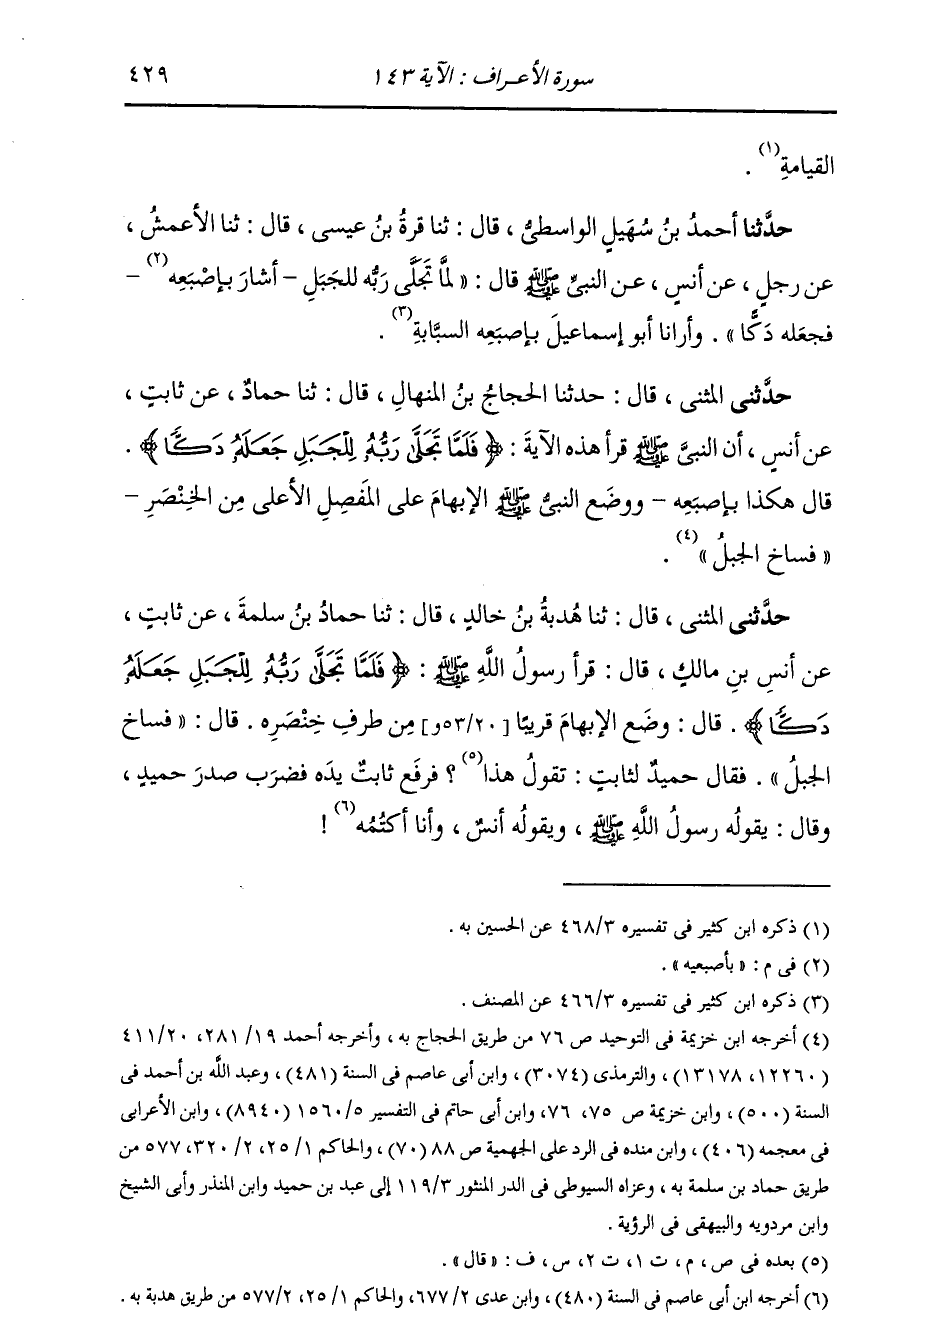 سورة الأعراف : الآية ١٤٣ ٤٢٩
القيامةِ(١) .
حدَّثنا أحمدُ بنُ سُهَيلٍ الواسطىُّ ، قال : ثنا قرةُ بنُ عيسى ، قال : ثنا الأعمشُ ،
عن رجلٍ ، عن أنسٍ ، عن النبىِّ ﷺ قال : « لمَّا تَجَلَّى رَبُّه للجَبَلِ – أشارَ بإصْبَعِه(٢) –
فجعَله دَكًّا » . وأرانا أبو إسماعيلَ بإصبَعِه السبَّابةِ(٣) .
حدَّثنى المثنى ، قال : حدثنا الحجاجُ بنُ المنهالِ ، قال : ثنا حمادٌ ، عن ثابتٍ ،
عن أنسٍ ، أن النبىَّ ﷺ قرأ هذه الآيةَ : ﴿ فَلَمَّا تَجَلَّىٰ رَبُّهُ لِلْجَبَلِ جَعَلَهُ دَكًّا ﴾ .
قال هكذا بإصبَعِه – ووضَع النبىُّ ﷺ الإبهامَ على المَفصِلِ الأعلى مِن الخِنْصَرِ –
« فساخ الجبلُ »(٤) .
حدَّثنى المثنى ، قال : ثنا هُدبةُ بنُ خالدٍ ، قال : ثنا حمادُ بنُ سلمةَ ، عن ثابتٍ ،
عن أنسِ بنِ مالكٍ ، قال : قرأ رسولُ اللَّهِ ﷺ : ﴿ فَلَمَّا تَجَلَّىٰ رَبُّهُ لِلْجَبَلِ جَعَلَهُ
دَكًّا ﴾ . قال : وضَع الإبهامَ قريبًا [٥٣/٢٠و] مِن طرفِ خِنْصَرِه . قال : « فساخ
الجبلُ » . فقال حميدٌ لثابتٍ : تقولُ هذا(٥) ؟ فرفَع ثابتٌ يدَه فضرَب صدرَ حميدٍ ،
وقال : يقولُه رسولُ اللَّهِ ﷺ ، ويقولُه أنسٌ ، وأنا أكتُمُه(٦) !
(١) ذكره ابن كثير فى تفسيره ٤٦٨/٣ عن الحسين به .
(٢) فى م : « بأصبعيه » .
(٣) ذكره ابن كثير فى تفسيره ٤٦٦/٣ عن المصنف .
(٤) أخرجه ابن خزيمة فى التوحيد ص ٧٦ من طريق الحجاج به ، وأخرجه أحمد ١٩/ ٢٨١، ٤١١/٢٠
(١٢٢٦٠، ١٣١٧٨) ، والترمذى (٣٠٧٤) ، وابن أبى عاصم فى السنة (٤٨١) ، وعبد الله بن أحمد فى
السنة (٥٠٠) ، وابن خزيمة ص ٧٥، ٧٦، وابن أبى حاتم فى التفسير ١٥٦٠/٥ (٨٩٤٠) ، وابن الأعرابى
فى معجمه (٤٠٦) ، وابن منده فى الرد على الجهمية ص ٨٨ (٧٠) ، والحاكم ١/ ٢٥، ٢/ ٣٢٠، ٥٧٧ من
طريق حماد بن سلمة به ، وعزاه السيوطى فى الدر المنثور ١١٩/٣ إلى عبد بن حميد وابن المنذر وأبى الشيخ
وابن مردويه والبيهقى فى الرؤية .
(٥) بعده فى ص ، م ، ت ١، ت ٢، س ، ف : « قال » .
(٦) أخرجه ابن أبى عاصم فى السنة (٤٨٠) ، وابن عدى ٢/ ٦٧٧، والحاكم ١/ ٢٥، ٥٧٧/٢ من طريق هدبة به .